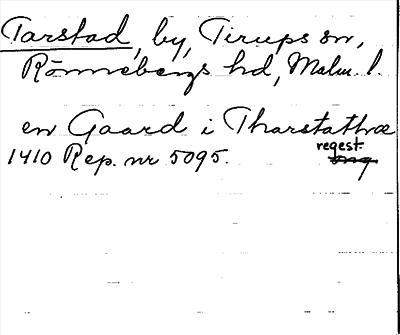 Tarstad, by, Tirups sn,
Rönnebergs hd, Malm. l.
en Gaard i Tharstathræ
1410 Rep. nr 5095. regest.